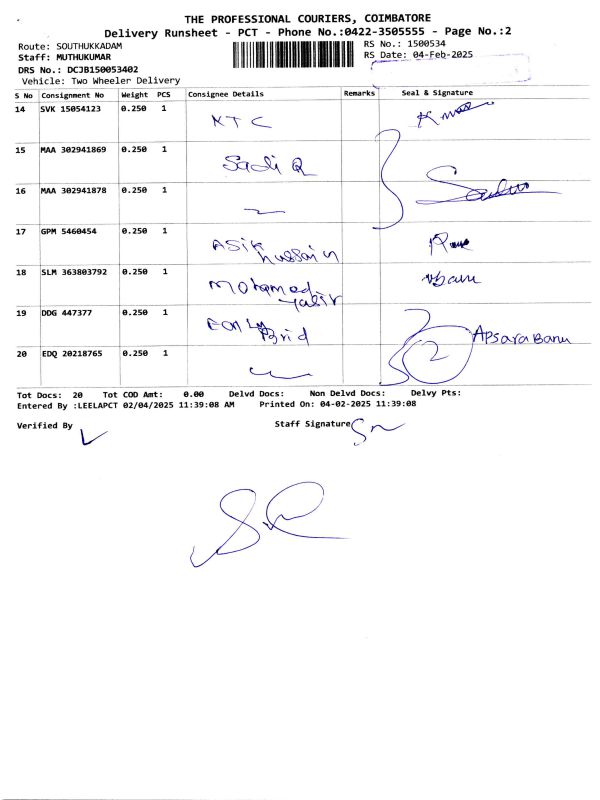 THE PROFESSIONAL COURIERS, COIMBATORE
Delivery Runsheet - PCT - Phone No.:0422-3505555 - Page No.:2
Route: SOUTHUKKADAM
RS No.: 1500534
Staff: MUTHUKUMAR
RS Date: 04-Feb-2025
DRS No.: DCJB150053402
Vehicle: Two Wheeler Delivery
S No Consignment No Weight PCS Consignee Details Remarks Seal & Signature
14 SVK 15054123 0.250 1 KTC
15 MAA 302941869 0.250 1 Sadi Q
16 MAA 302941878 0.250 1
17 GPM 5460454 0.250 1 ASik
hussain
18 SLM 363803792 0.250 1 Mohamed
19 DDG 447377 0.250 1
Apsara Banu
20 EDQ 20218765 0.250 1 2
Tot Docs: 20 Tot COD Amt: 0.00 Delvd Docs: Non Delvd Docs: Delvy Pts:
Entered By :LEELAPCT 02/04/2025 11:39:08 AM Printed On: 04-02-2025 11:39:08
Verified By Staff Signature